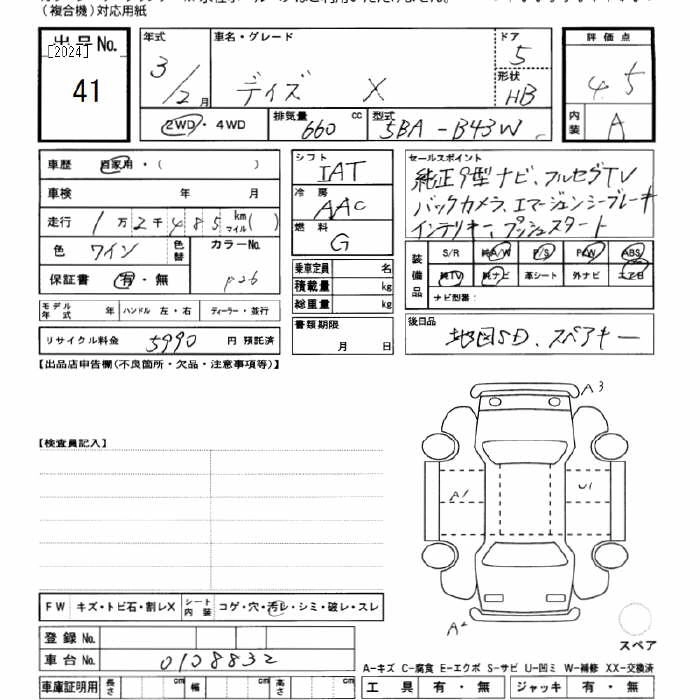 (複合機)対応用紙
出品No.
[2024]
41
年式 3/2月
車名・グレード デイズ X
ドア 5
形状 HB
評価点 4.5
内装 A
2WD・4WD
排気量 660 cc
型式 5BA-B43W
車歴 自家用・( )
車検 年 月
走行 1万2千485 km マイル( )
色 ワイン 色替 カラーNo.
保証書 有・無
モデル年式 年 ハンドル 左・右 ディーラー・並行
リサイクル料金 5990 円 預託済
シフト IAT
冷房 AAC
燃料 G
乗車定員 名
積載量 kg
総重量 kg
書類期限 月 日
セールスポイント
純正9型ナビ、フルセグTV
バックカメラ、エマージェンシーブレーキ
インテリキー、プッシュスタート
装備品 S/R 純A/W P/S P/W ABS
純TV 純ナビ 革シート 外ナビ エアB
ナビ型番:
後日品
地図SD、スペアキー
【出品店申告欄(不良箇所・欠品・注意事項等)】
【検査員記入】
A3
A1
U1
A2
スペア
FW キズ・トビ石・割レX シート内装 コゲ・穴・汚レ・シミ・破レ・スレ
登録No.
車台No. 0108832
車庫証明用 長さ cm 幅 cm 高さ cm
A-キズ C-腐食 E-エクボ S-サビ U-凹ミ W-補修 XX-交換済
工具 有・無 ジャッキ 有・無